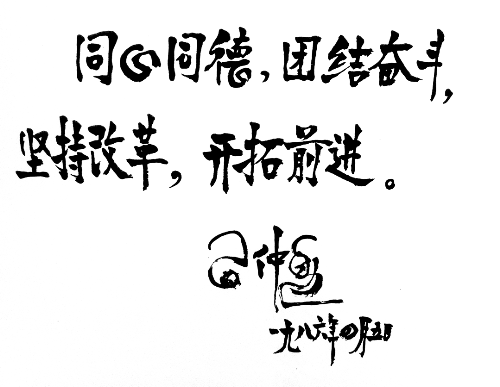 同心同德，团结奋斗，
坚持改革，开拓前进。
仲
一九八六年四月五日